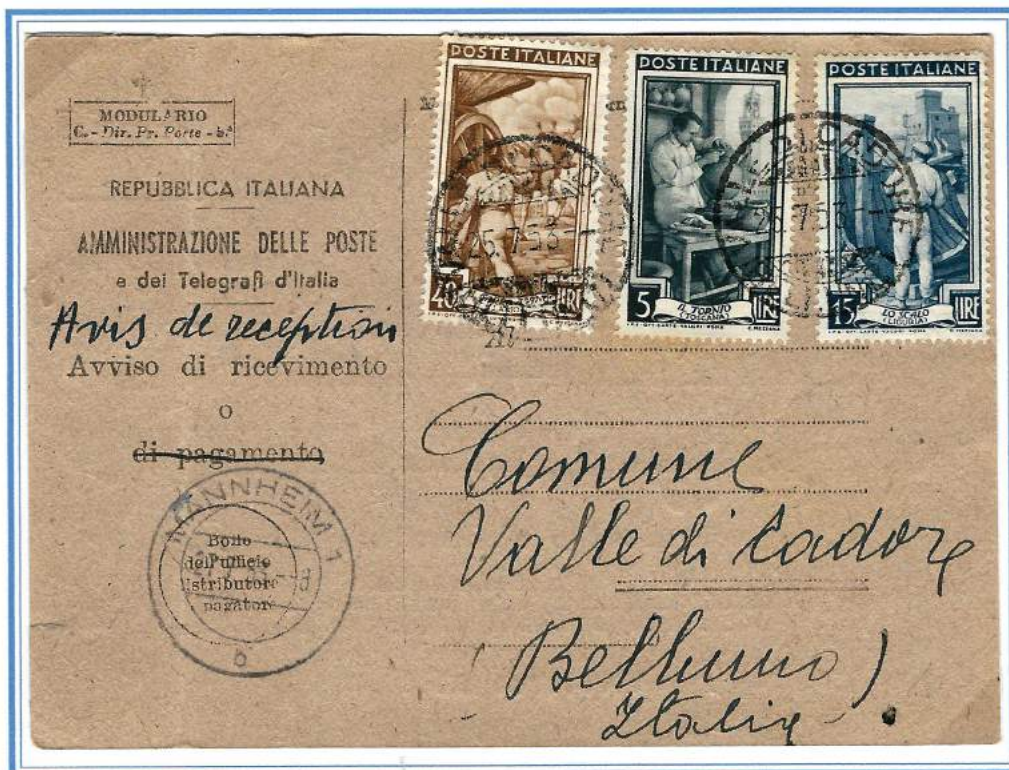 MODULARIO
C. - Dir. Pr. Poste - b.ª
REPUBBLICA ITALIANA
AMMINISTRAZIONE DELLE POSTE
e dei Telegrafi d'Italia
Avis de reception
Avviso di ricevimento
o
di pagamento
MANNHEIM 1
Bollo
dell'ufficio
distributore
pagatore
b
POSTE ITALIANE
40 LIRE
25.7.53
POSTE ITALIANE
5 LIRE
IL TORNIO
(TOSCANA)
POSTE ITALIANE
15 LIRE
LO SCALO
(LIGURIA)
DI CADORE
25.7.53
Comune
Valle di Cadore
Belluno)
Italia